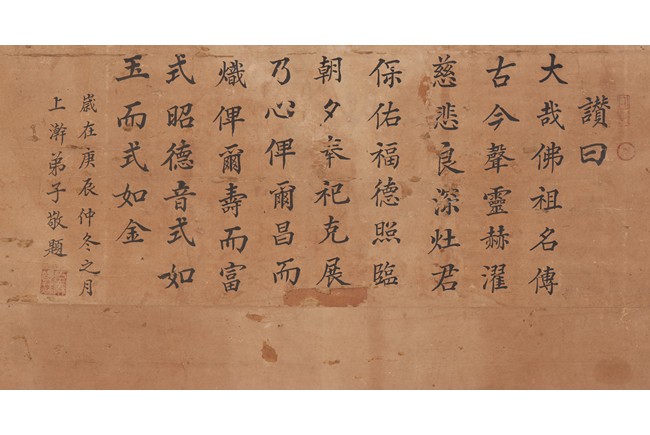 讃曰
大哉佛祖名傳
古今聲靈赫濯
慈悲良深灶君
保佑福德照臨
朝夕奉祀克展
乃心俾爾昌而
熾俾爾壽而富
式昭德音式如
玉而式如金
嵗在庚辰仲冬之月
上澣弟子敬題